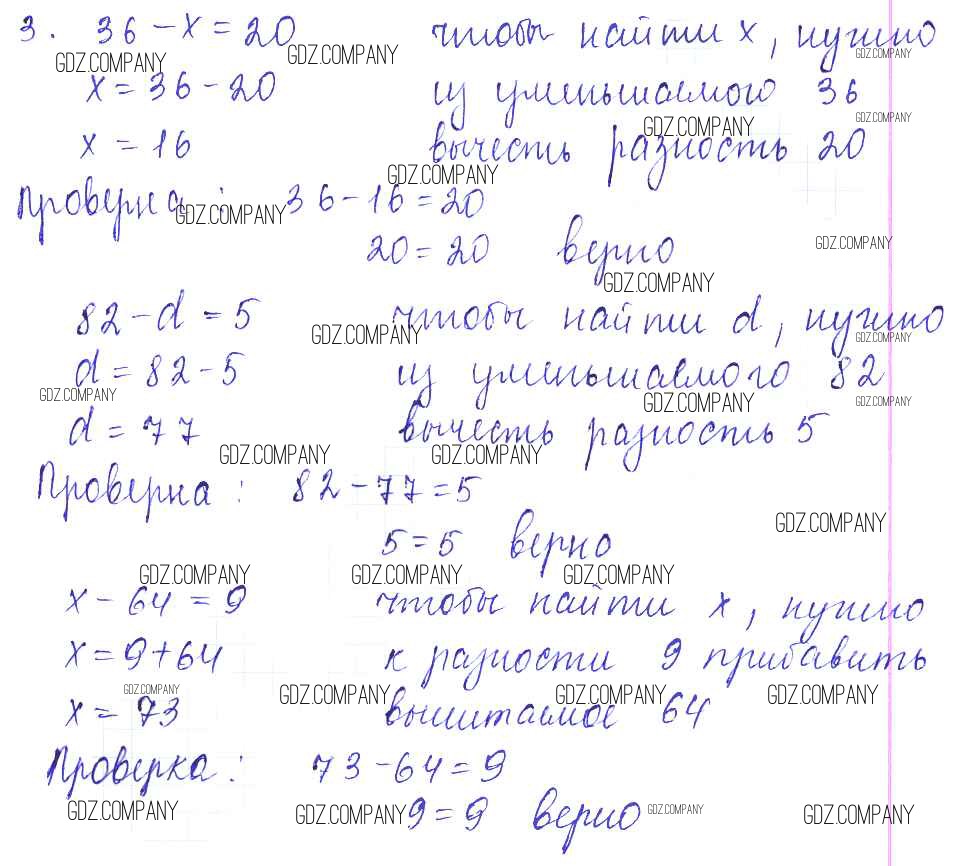 3. 36 - x = 20 чтобы найти x, нужно
GDZ.COMPANY GDZ.COMPANY GDZ.COMPANY
x = 36 - 20 из уменьшаемого 36
GDZ.COMPANY GDZ.COMPANY
x = 16 вычесть разность 20
GDZ.COMPANY
Проверка: 36 - 16 = 20
GDZ.COMPANY
20 = 20 верно
GDZ.COMPANY
GDZ.COMPANY
82 - d = 5 чтобы найти d, нужно
GDZ.COMPANY GDZ.COMPANY
d = 82 - 5 из уменьшаемого 82
GDZ.COMPANY GDZ.COMPANY GDZ.COMPANY
d = 77 вычесть разность 5
GDZ.COMPANY GDZ.COMPANY
Проверка: 82 - 77 = 5
GDZ.COMPANY
5 = 5 верно
GDZ.COMPANY GDZ.COMPANY GDZ.COMPANY
x - 64 = 9 чтобы найти x, нужно
x = 9 + 64 к разности 9 прибавить
GDZ.COMPANY GDZ.COMPANY GDZ.COMPANY GDZ.COMPANY
x = 73 вычитаемое 64
Проверка: 73 - 64 = 9
GDZ.COMPANY GDZ.COMPANY GDZ.COMPANY GDZ.COMPANY
9 = 9 верно